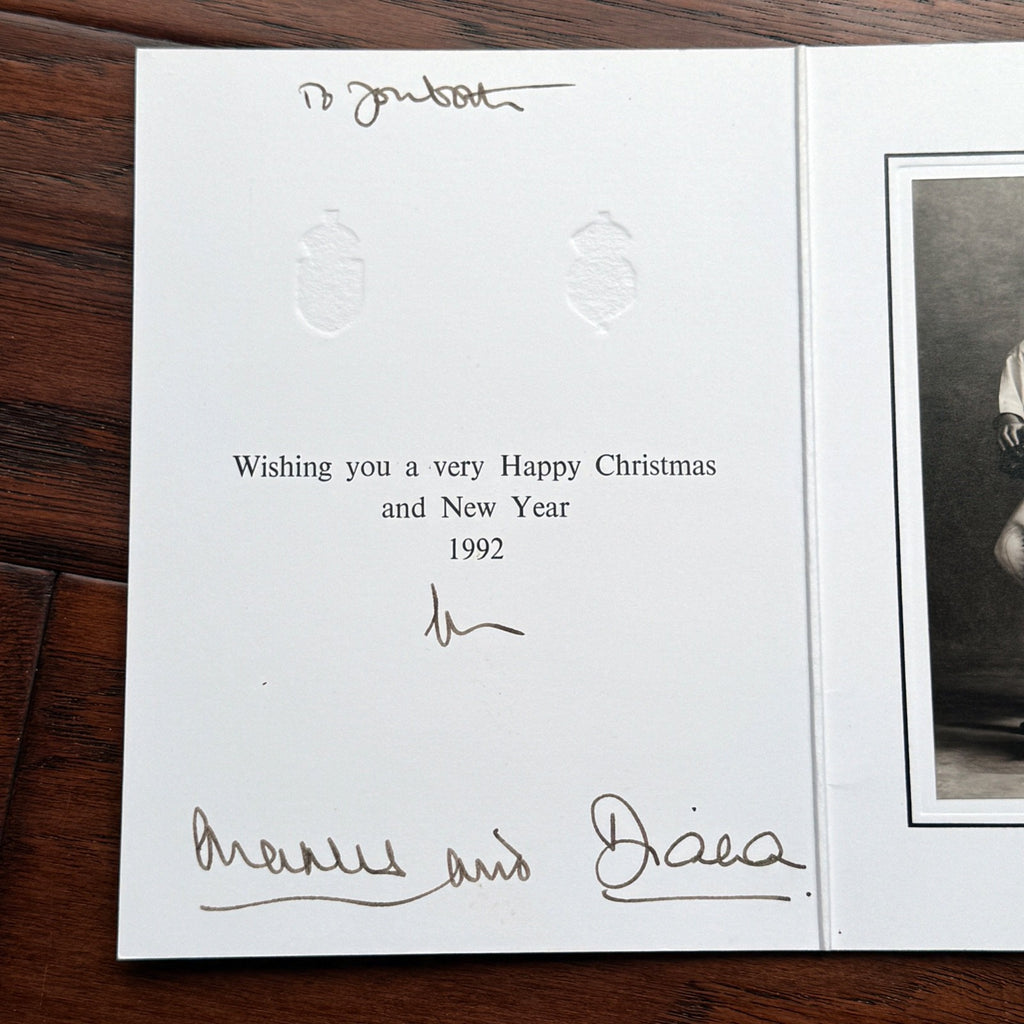 To
Wishing you a very Happy Christmas
and New Year
1992
Charles and Diana